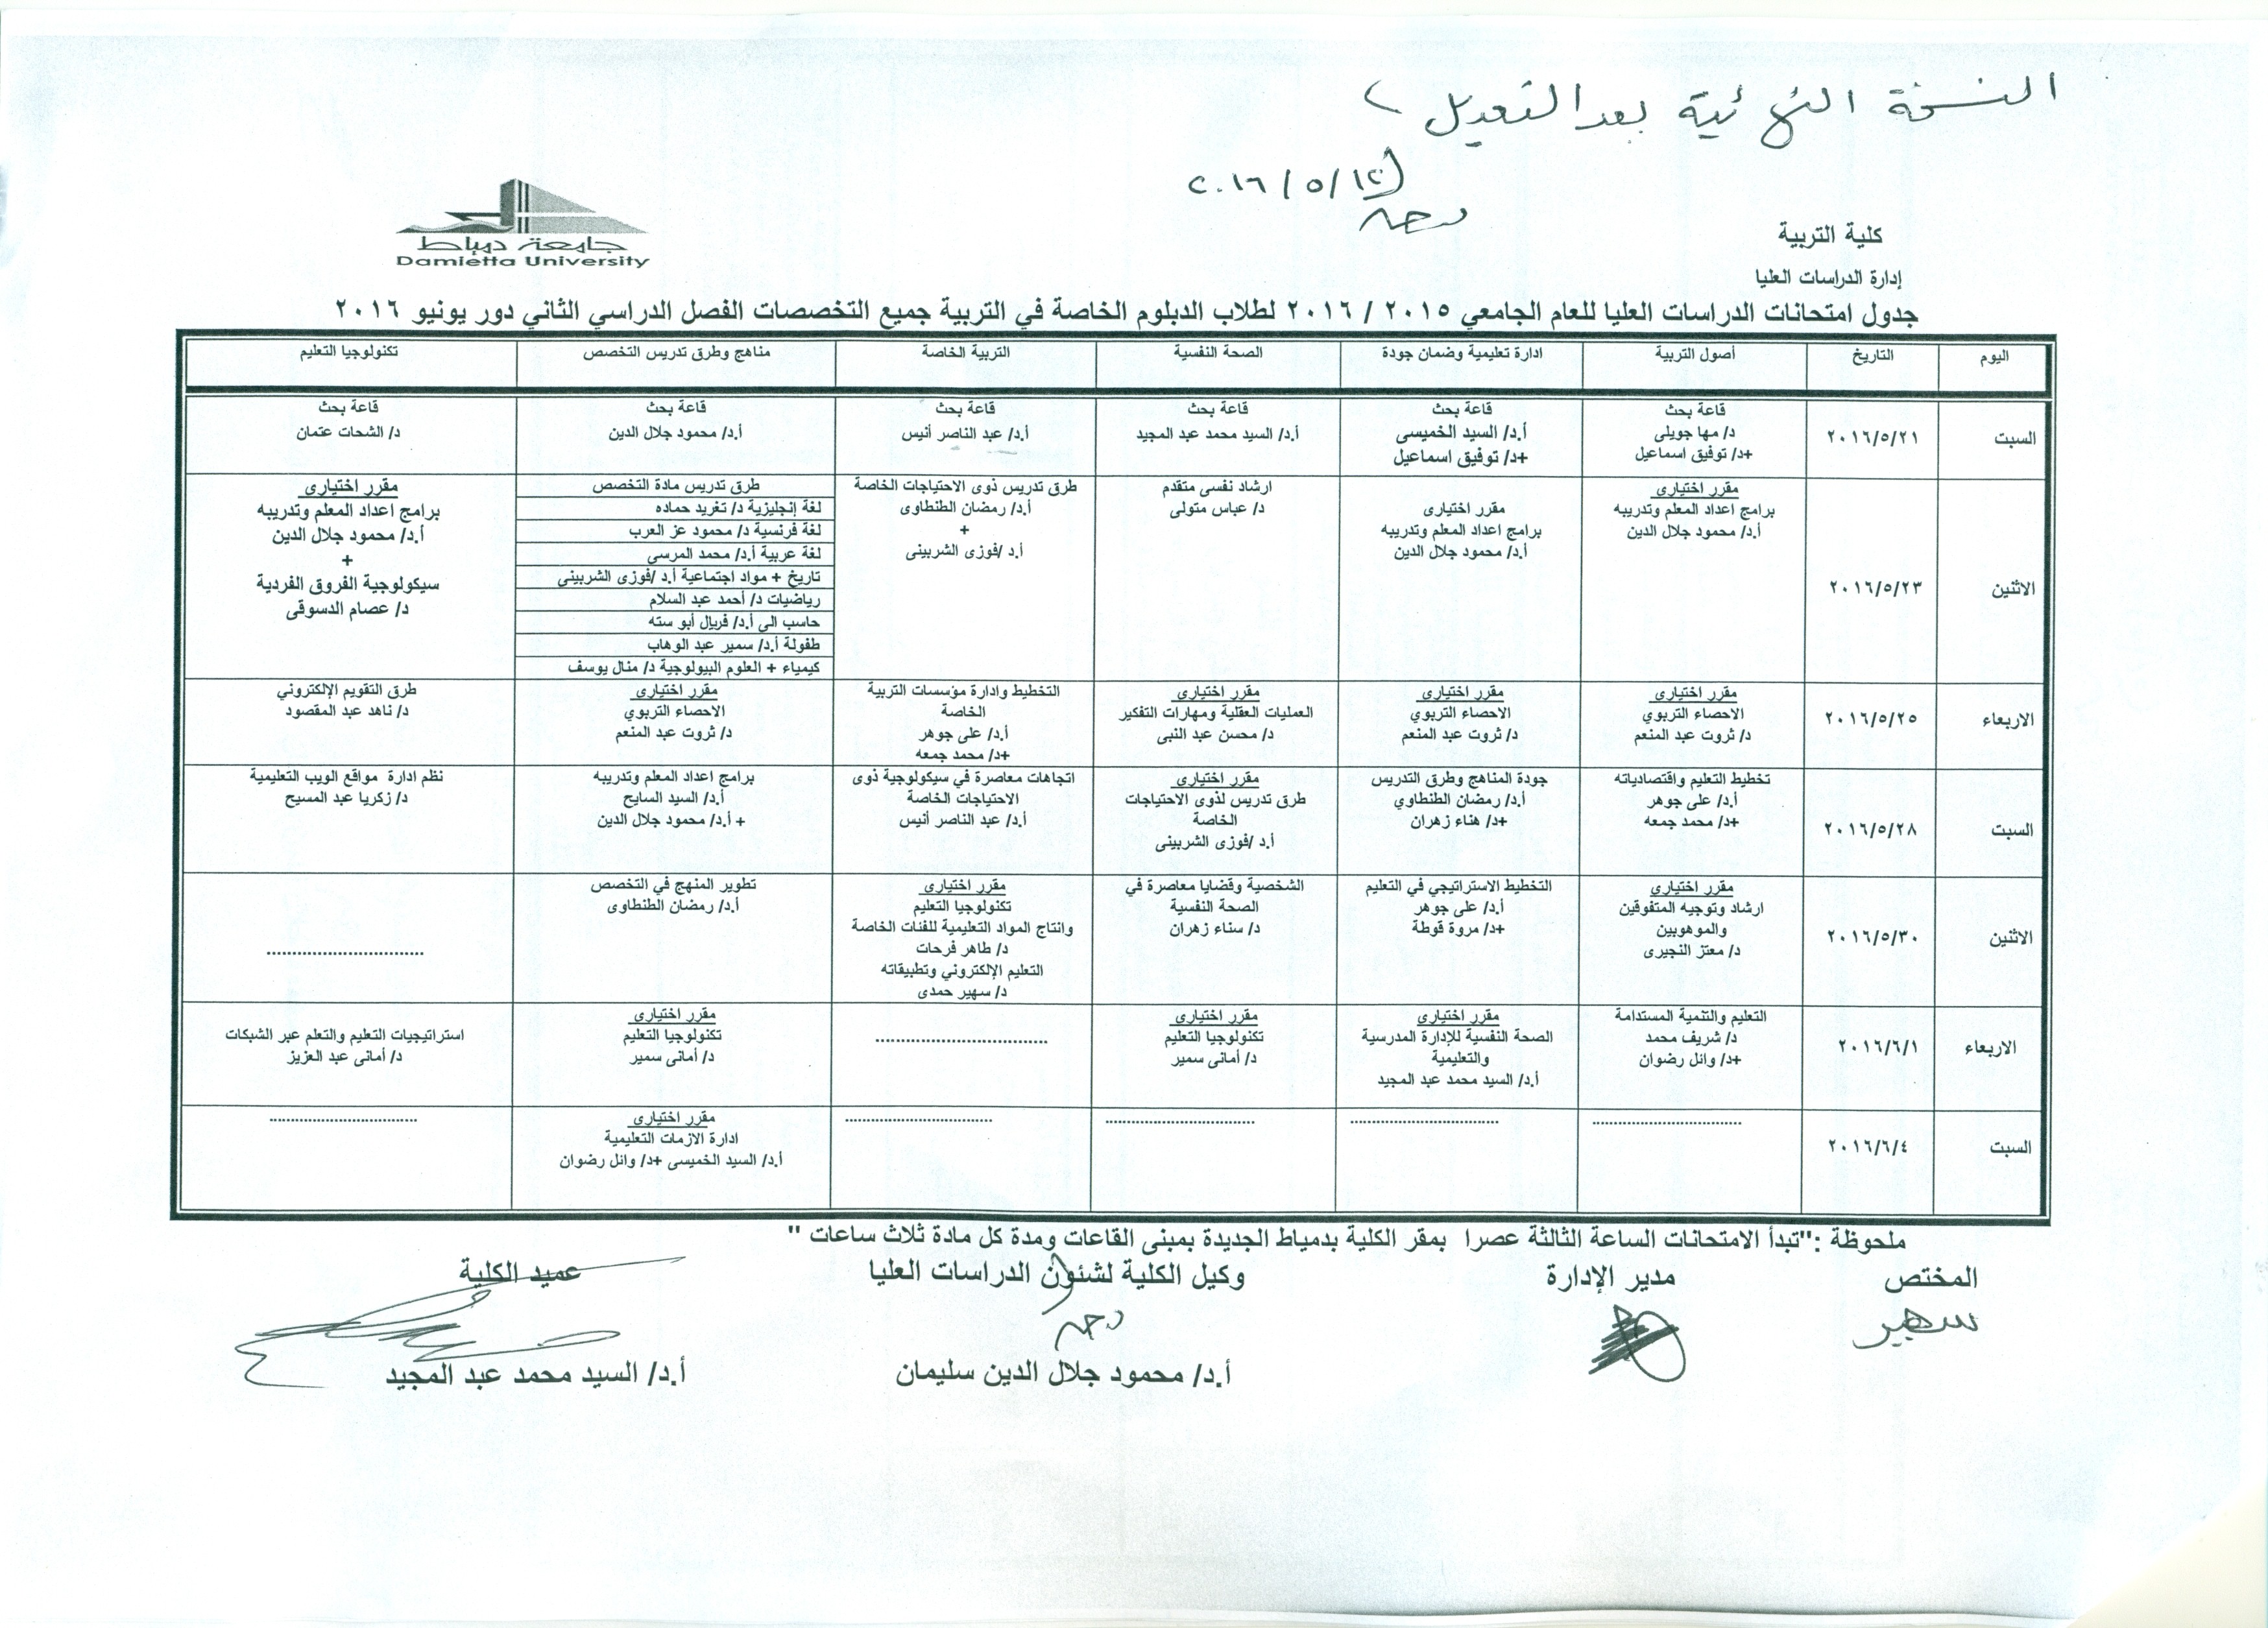 النسخة النهائية بعد التعديل
٢٠١٦/٥/١٢
جامعة دمياط
Damietta University
كلية التربية
إدارة الدراسات العليا
جدول امتحانات الدراسات العليا للعام الجامعي ٢٠١٥ / ٢٠١٦ لطلاب الدبلوم الخاصة في التربية جميع التخصصات الفصل الدراسي الثاني دور يونيو ٢٠١٦
اليوم التاريخ أصول التربية ادارة تعليمية وضمان جودة الصحة النفسية التربية الخاصة مناهج وطرق تدريس التخصص تكنولوجيا التعليم
السبت
٢٠١٦/٥/٢١
قاعة بحث
د/ مها جويلى
+د/ توفيق اسماعيل
قاعة بحث
أ.د/ السيد الخميسى
+د/ توفيق اسماعيل
قاعة بحث
أ.د/ السيد محمد عبد المجيد
قاعة بحث
أ.د/ عبد الناصر أنيس
قاعة بحث
أ.د/ محمود جلال الدين
قاعة بحث
د/ الشحات عتمان
الاثنين
٢٠١٦/٥/٢٣
مقرر اختيارى
برامج اعداد المعلم وتدريبه
أ.د/ محمود جلال الدين
مقرر اختيارى
برامج اعداد المعلم وتدريبه
أ.د/ محمود جلال الدين
ارشاد نفسى متقدم
د/ عباس متولى
طرق تدريس ذوى الاحتياجات الخاصة
أ.د/ رمضان الطنطاوى
+
أ.د /فوزى الشربينى
طرق تدريس مادة التخصص
لغة إنجليزية د/ تغريد حماده
لغة فرنسية د/ محمود عز العرب
لغة عربية أ.د/ محمد المرسى
تاريخ + مواد اجتماعية أ.د /فوزى الشربينى
رياضيات د/ أحمد عبد السلام
حاسب الى أ.د/ فريال أبو سته
طفولة أ.د/ سمير عبد الوهاب
كيمياء + العلوم البيولوجية د/ منال يوسف
مقرر اختيارى
برامج اعداد المعلم وتدريبه
أ.د/ محمود جلال الدين
+
سيكولوجية الفروق الفردية
د/ عصام الدسوقى
الاربعاء
٢٠١٦/٥/٢٥
مقرر اختيارى
الاحصاء التربوي
د/ ثروت عبد المنعم
مقرر اختيارى
الاحصاء التربوي
د/ ثروت عبد المنعم
مقرر اختيارى
العمليات العقلية ومهارات التفكير
د/ محسن عبد النبى
التخطيط وادارة مؤسسات التربية
الخاصة
أ.د/ على جوهر
+د/ محمد جمعه
مقرر اختيارى
الاحصاء التربوي
د/ ثروت عبد المنعم
طرق التقويم الإلكتروني
د/ ناهد عبد المقصود
السبت
٢٠١٦/٥/٢٨
تخطيط التعليم واقتصادياته
أ.د/ على جوهر
+د/ محمد جمعه
جودة المناهج وطرق التدريس
أ.د/ رمضان الطنطاوي
+د/ هناء زهران
مقرر اختيارى
طرق تدريس لذوى الاحتياجات
الخاصة
أ.د /فوزى الشربينى
اتجاهات معاصرة في سيكولوجية ذوى
الاحتياجات الخاصة
أ.د/ عبد الناصر أنيس
برامج اعداد المعلم وتدريبه
أ.د/ السيد السايح
+ أ.د/ محمود جلال الدين
نظم ادارة مواقع الويب التعليمية
د/ زكريا عبد المسيح
الاثنين
٢٠١٦/٥/٣٠
مقرر اختيارى
ارشاد وتوجيه المتفوقين
والموهوبين
د/ معتز النجيرى
التخطيط الاستراتيجي في التعليم
أ.د/ على جوهر
+د/ مروة قوطة
الشخصية وقضايا معاصرة في
الصحة النفسية
د/ سناء زهران
مقرر اختيارى
تكنولوجيا التعليم
وانتاج المواد التعليمية للفئات الخاصة
د/ طاهر فرحات
التعليم الإلكتروني وتطبيقاته
د/ سهير حمدى
تطوير المنهج في التخصص
أ.د/ رمضان الطنطاوى
................................
الاربعاء
٢٠١٦/٦/١
التعليم والتنمية المستدامة
د/ شريف محمد
+د/ وائل رضوان
مقرر اختيارى
الصحة النفسية للإدارة المدرسية
والتعليمية
أ.د/ السيد محمد عبد المجيد
مقرر اختيارى
تكنولوجيا التعليم
د/ أمانى سمير
................................
مقرر اختيارى
تكنولوجيا التعليم
د/ أمانى سمير
استراتيجيات التعليم والتعلم عبر الشبكات
د/ أمانى عبد العزيز
السبت
٢٠١٦/٦/٤
................................
................................
................................
................................
مقرر اختيارى
ادارة الازمات التعليمية
أ.د/ السيد الخميسى +د/ وائل رضوان
................................
ملحوظة :"تبدأ الامتحانات الساعة الثالثة عصرا بمقر الكلية بدمياط الجديدة بمبنى القاعات ومدة كل مادة ثلاث ساعات "
المختص مدير الإدارة وكيل الكلية لشئون الدراسات العليا عميد الكلية
سهير
أ.د/ محمود جلال الدين سليمان أ.د/ السيد محمد عبد المجيد